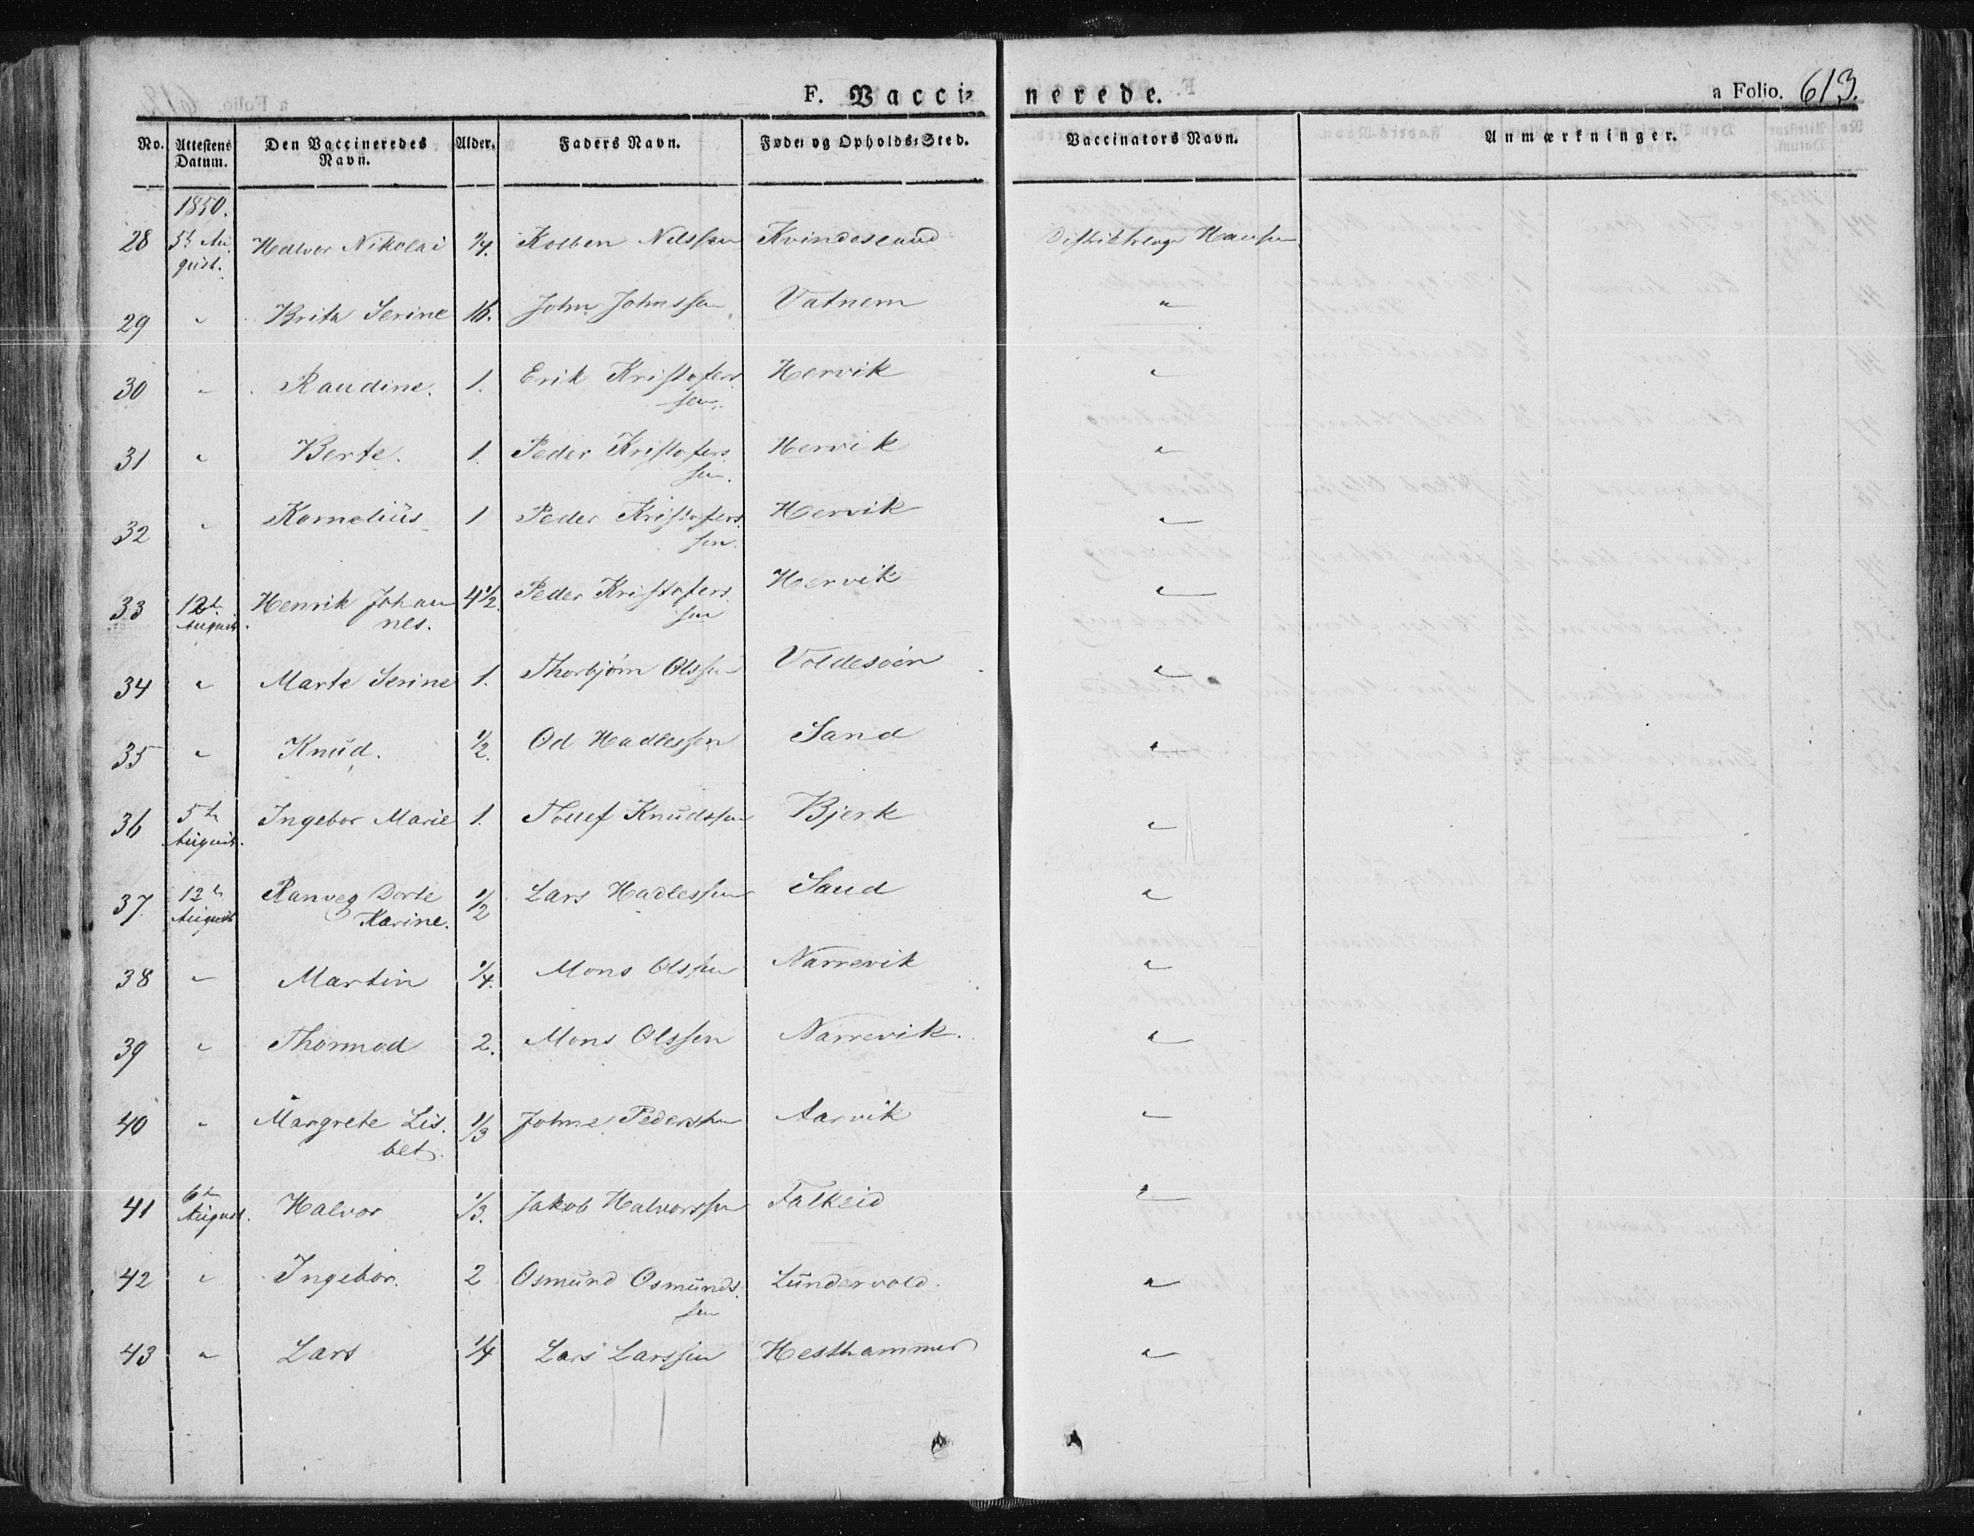 F. Vacci⸗ nerede. a Folio. 613.
No. Attestens Datum. Den Vaccineredes Navn. Alder. Faders Navn. Føde⸗ og Opholds⸗Sted. Vaccinators Navn. Anmærkninger.
1850.
28 5te Au Halvor Nikolai 1/4. Kolben Nilssen Kvindesland Distriktslæge Hansen
gust.
29 " Brita Serine John Johnssen Vatnem "
30 " Raudine. 1. Erik Kristofers Hervik "
sen.
31 " Berte. 1. Peder Kristofers Hervik "
sen.
32 " Kornelius 1 Peder Kristofers Hervik "
sen.
33 12te Henrik Johan 4 1/2. Peder Kristofers Hervik "
August. nes. sen
34 " Marte Serine 1. Thorbjørn Olssen Voldesøen "
35 " Knud. 1/2. Od Hadlessen Sand "
36 5te Ingebor Marie 1. Knudssen Bjerk "
August.
37. 12te Ranveg Dorte 1/2 Lars Hadlessen Sand "
August Karine.
38 " Martin 1/4. Mons Olssen Narrevik "
39 " Thormod 2. Mons Olssen Narrevik. "
40 " Margrete Lis. 1/3 Johne Pederssen Aarvik "
bet.
41 6te Halvor 1/3. Jakob Halvorssen Falkeid "
August.
42 " Ingebor. 2 Osmund Osmunds. Lundervold. "
sen
43 " Lars 1/4 Lars Larssen Hesthammer "